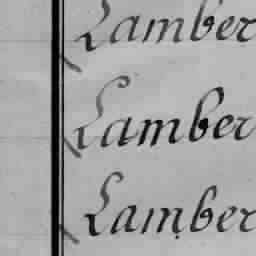 Lamber
Lamber
Lamber